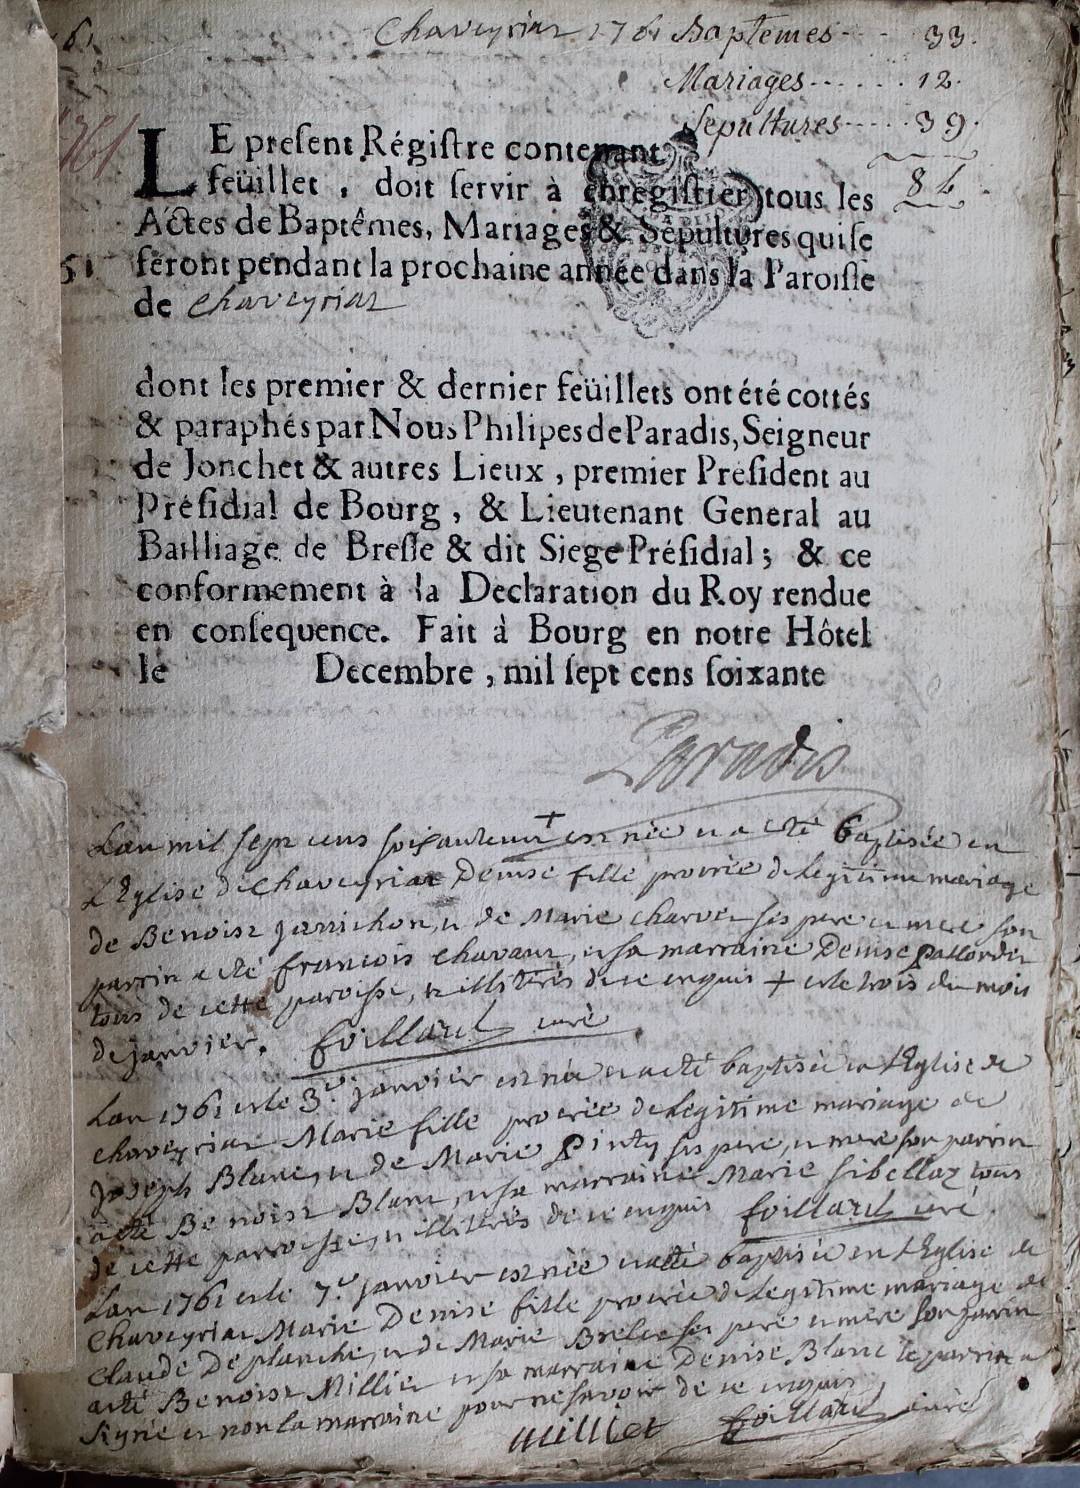 Chaveyriat 1761 Baptemes - - 33.
Mariages - - - - - - 12.
Sepultures - - - - 39.
84
1761
LE preſent Régiſtre contenant
feüillet, doit ſervir à enregiſtrer tous les
Actes de Baptêmes, Mariages & Sépultures qui ſe
feront pendant la prochaine année dans la Paroiſſe
de Chaveyriat
dont les premier & dernier feüillets ont été cottés
& paraphés par Nous Philipes de Paradis, Seigneur
de Jonchet & autres Lieux, premier Préſident au
Préſidial de Bourg, & Lieutenant General au
Bailliage de Breſſe & dit Siege Préſidial; & ce
conformement à la Declaration du Roy rendue
en conſequence. Fait à Bourg en notre Hôtel
le Decembre, mil ſept cens ſoixante
Paradis
Lan mil sept cens soixante un + est née et a eté baptisée en
L'Eglise de Chaveyriat Denise fille procrée de legitime mariage
de Benoist Jarrichon, et de Marie Charvet ses pere et mere son
parrin a eté francois chavant, et sa marraine Denise
tous de cette paroisse, et illitérés de ce enquis + et le trois du mois
de janvier. foillard curè
Lan 1761 et le 3e janvier est née et a eté baptisée en l'Eglise de
Chaveyriat Marie fille procrée de Legitime mariage de
Joseph Blanc, et de Marie Pinty ses pere, et mere son parrin
a eté Benoist Blanc, et sa marraine Marie sibellaz tous
de cette parroisse, et illitérés de ce enquis foillard curé.
Lan 1761 et le 7e janvier est née et a eté baptisée en l'Eglise de
Chaveyriat Marie Denise fille procrée de Legitime mariage de
Claude Deplanche, et de Marie ses pere et mere son parrin
a eté Benoist Millet et sa marraine Denise Blanc le parrin a
signé et non la marraine pour ne savoir de ce enquis
Milliet foillard curè